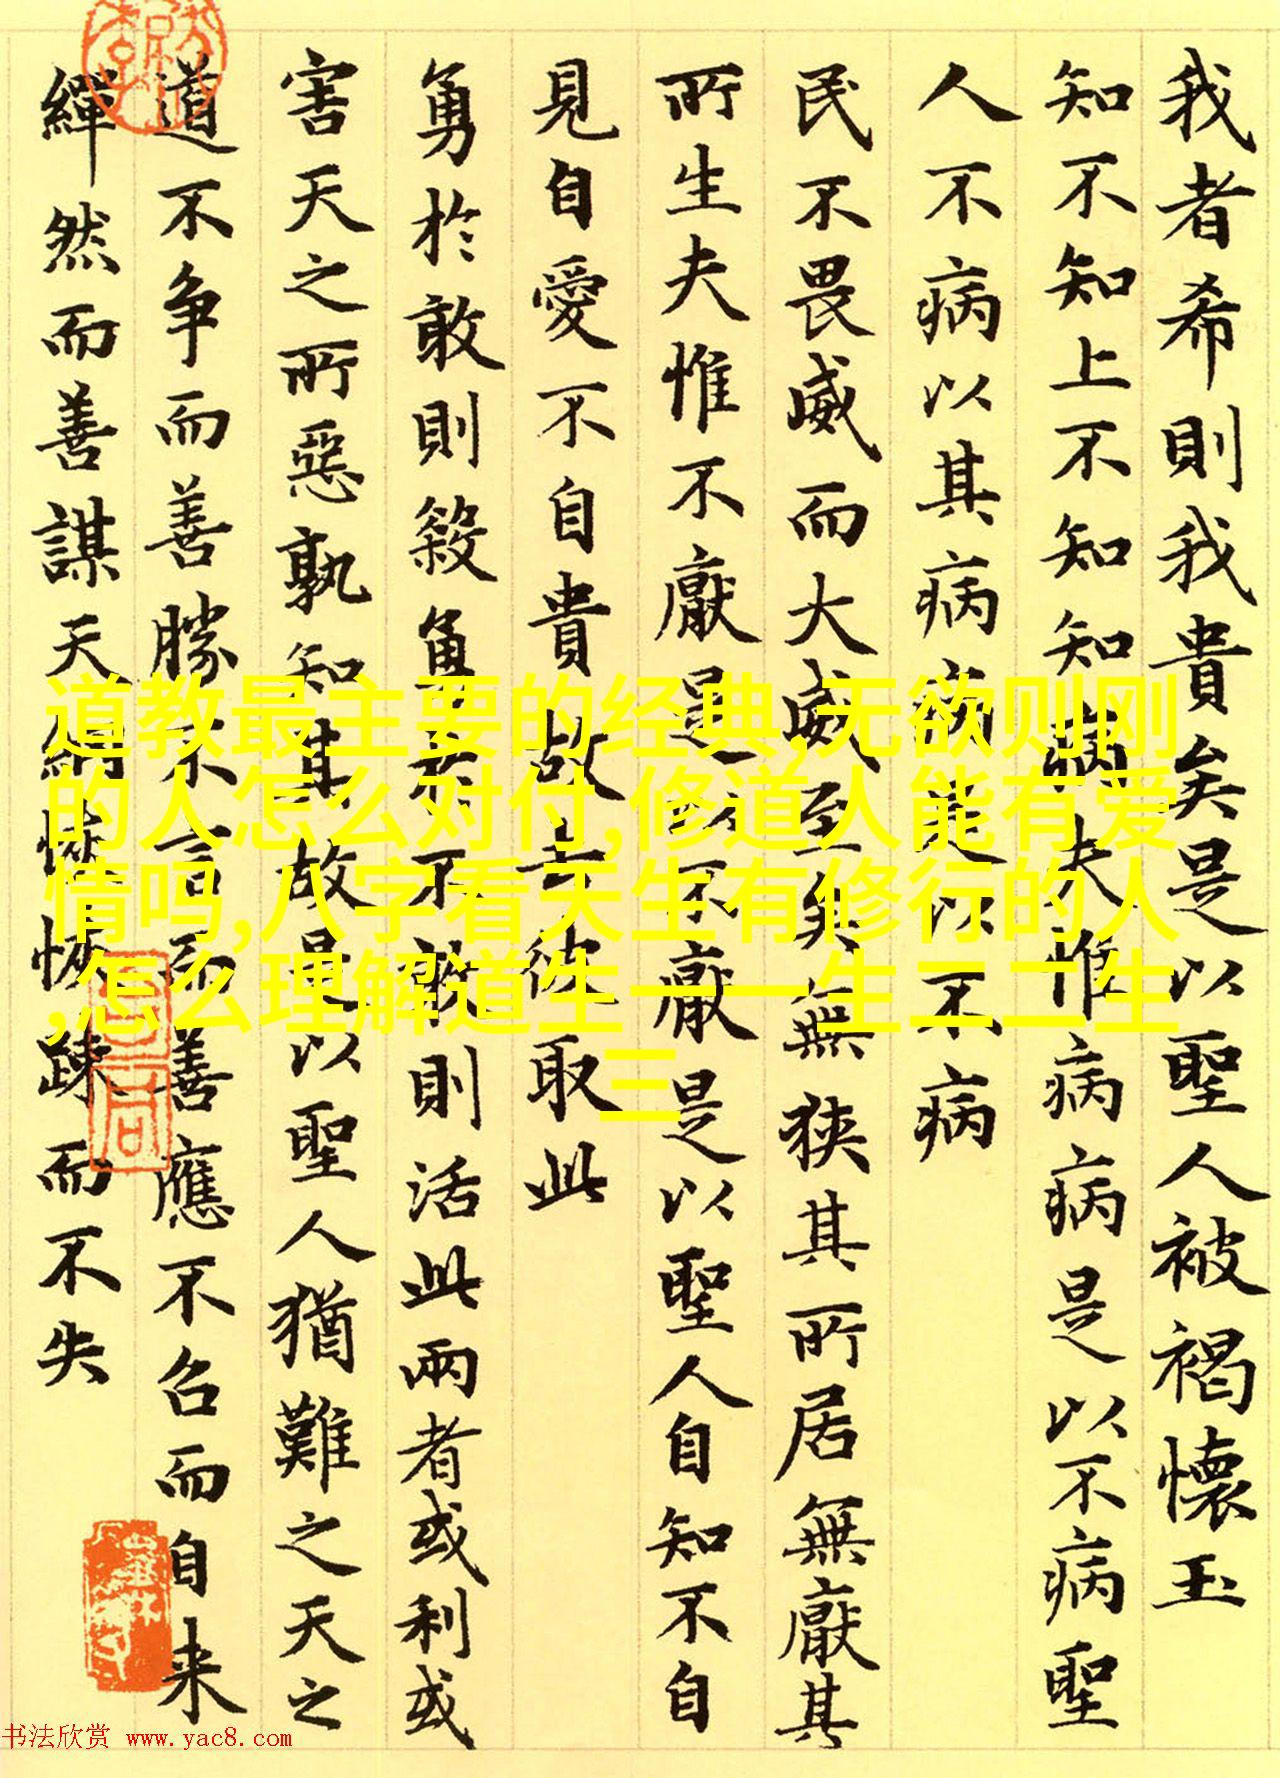 我者希則我貴矣是以聖人被褐懷玉
知不知上不知知病夫惟病病是以不病聖
人不病以其病病是以不病
民不畏威而大威至矣無狹其所居無厭其
所生夫惟不厭是以不厭是以聖人自知不自
見自愛不自貴故去彼取此
勇於敢則殺勇於不敢則活此兩者或利或
害天之所惡孰知其故是以聖人猶難之天之
道不争而善勝不言而善應不召而自来
繟然而善謀天網恢恢踈而不失
道教最主要的经典,无欲则刚
的人怎么对付,修道人能有爱
情吗,八字看天生有修行的人
,怎么理解道生一一生二二生
三
书法欣赏 www.yac8.com